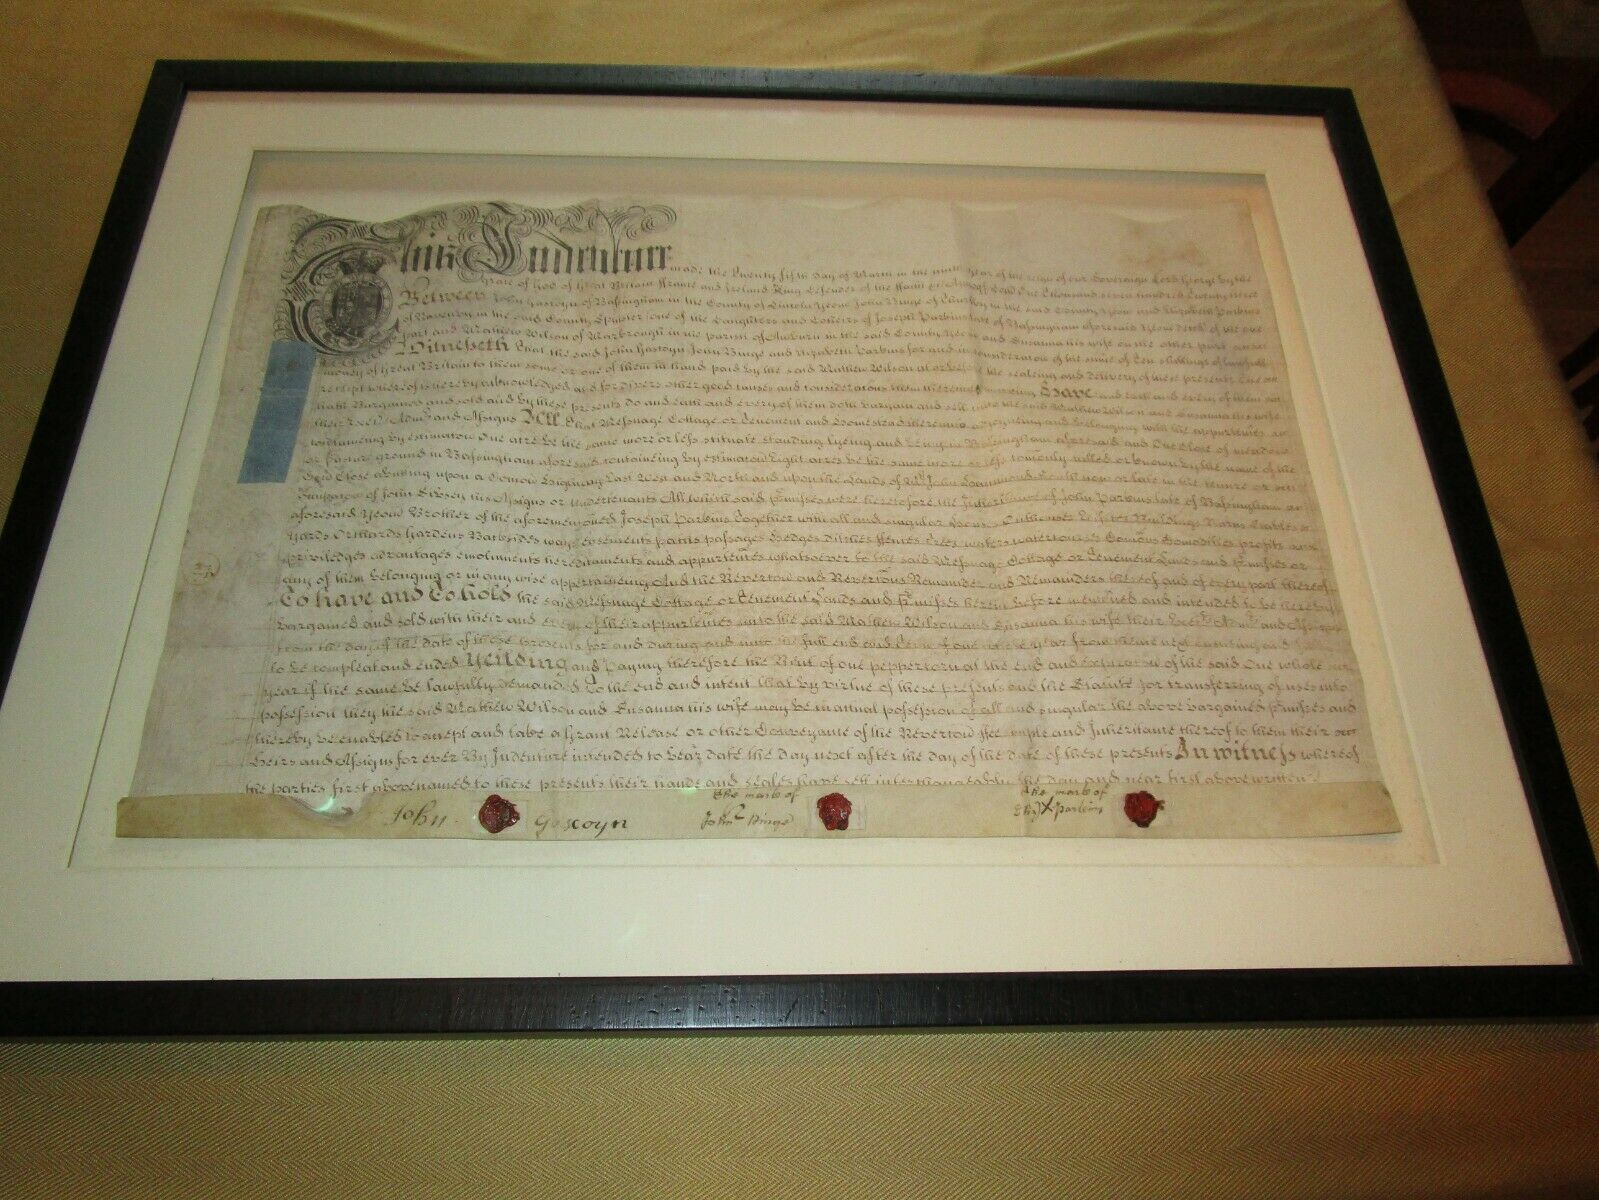 This Indenture made the twenty fifth day of March in the ninth year of the reign of our Sovereign Lord George by the
Grace of God of Great Britain France and Ireland King Defender of the Faith One thousand seven hundred twenty three
Between John Gascoyn of Bassingham in the County of Lincoln John Binge of in the said County and Elizabeth Parkins
of Navenby in the said County Spinster one of the Daughters and Coheirs of Joseph Parkins late of Bassingham aforesaid of the one
part and Mathew Wilson of in the parish of Auburn in the said County and Susanna his wife on the other part
Witnesseth that the said John Gascoyn John Binge and Elizabeth Parkins for and in consideration of the sume of Ten shillings of lawfull
money of Great Britain to them some or one of them in hand paid by the said Mathew Wilson at or before the sealing and delivery of these presents the
receipt whereof is hereby acknowledged and for divers other good causes and considerations them thereunto moving Have and each and every of them
hath Bargained and sold and by these presents do and each and every of them doth bargain and sell unto the said Mathew Wilson and Susanna his wife
their and Assigns All that Messuage Cottage or Tenement and Homestead thereunto adjoyning and belonging with the appurtences
containeing by estimation One acre be the same more or less situate standing lyeing and being in Bassingham aforesaid and One Close of meadow
or pasture ground in Bassingham aforesaid containeing by estimation Eight acres be the same more or less comonly called or known by the name of the
Close abutting upon a Comon East West and North and upon the Lands of Mr John South now or late in the tenure or
of John his Assigns or undertenants All which said premisses were heretofore the Inheritance of John Parkins late of Bassingham
aforesaid Brother of the aforementioned Joseph Parkins Together with all and singular Houses Outhouses Buildings Barns Stables
Yards Orchards Gardens Backsides ways easements paths passages Hedges ditches fences trees waters watercourses Comons Comodities profits
priviledges advantages emoluments hereditaments and appurtences whatsoever to the said Messuage Cottage or Tenement Lands and premisses or
any of them belonging or in any wise appertaineing And the Revertion and Revertions Remainder and Remainders thereof and of every part thereof
To have and To hold the said Messuage Cottage or Tenement Lands and premisses herein before mentioned and intended to be hereby
bargained and sold with their and every of their appurtences unto the said Mathew Wilson and Susanna his wife their and Assigns
from the day of the date of these presents for and during and unto the full end and term of one whole year from thence next ensuing and
to be compleat and ended Yeilding and Paying therefore the Rent of one peppercorn at the end and expiration of the said One whole
year if the same be lawfully demanded To the end and intent that by virtue of these presents and the Statute for transferring of uses into
possession they the said Mathew Wilson and Susanna his wife may be in actual possession of all and singular the above bargained premisses and
thereby be enabled to accept and take a Grant Release or other Conveyance of the Revertion ffee simple and Inheritance thereof to them their
Heirs and Assigns for ever By Indenture intended to bear date the day next after the day of the date of these presents In witness whereof
the parties first abovenamed to these presents their hands and seales have sett interchangeably the day and year first above written
John Gascoyn
the mark of
John C Binge
the mark of
Eliz X Parkins